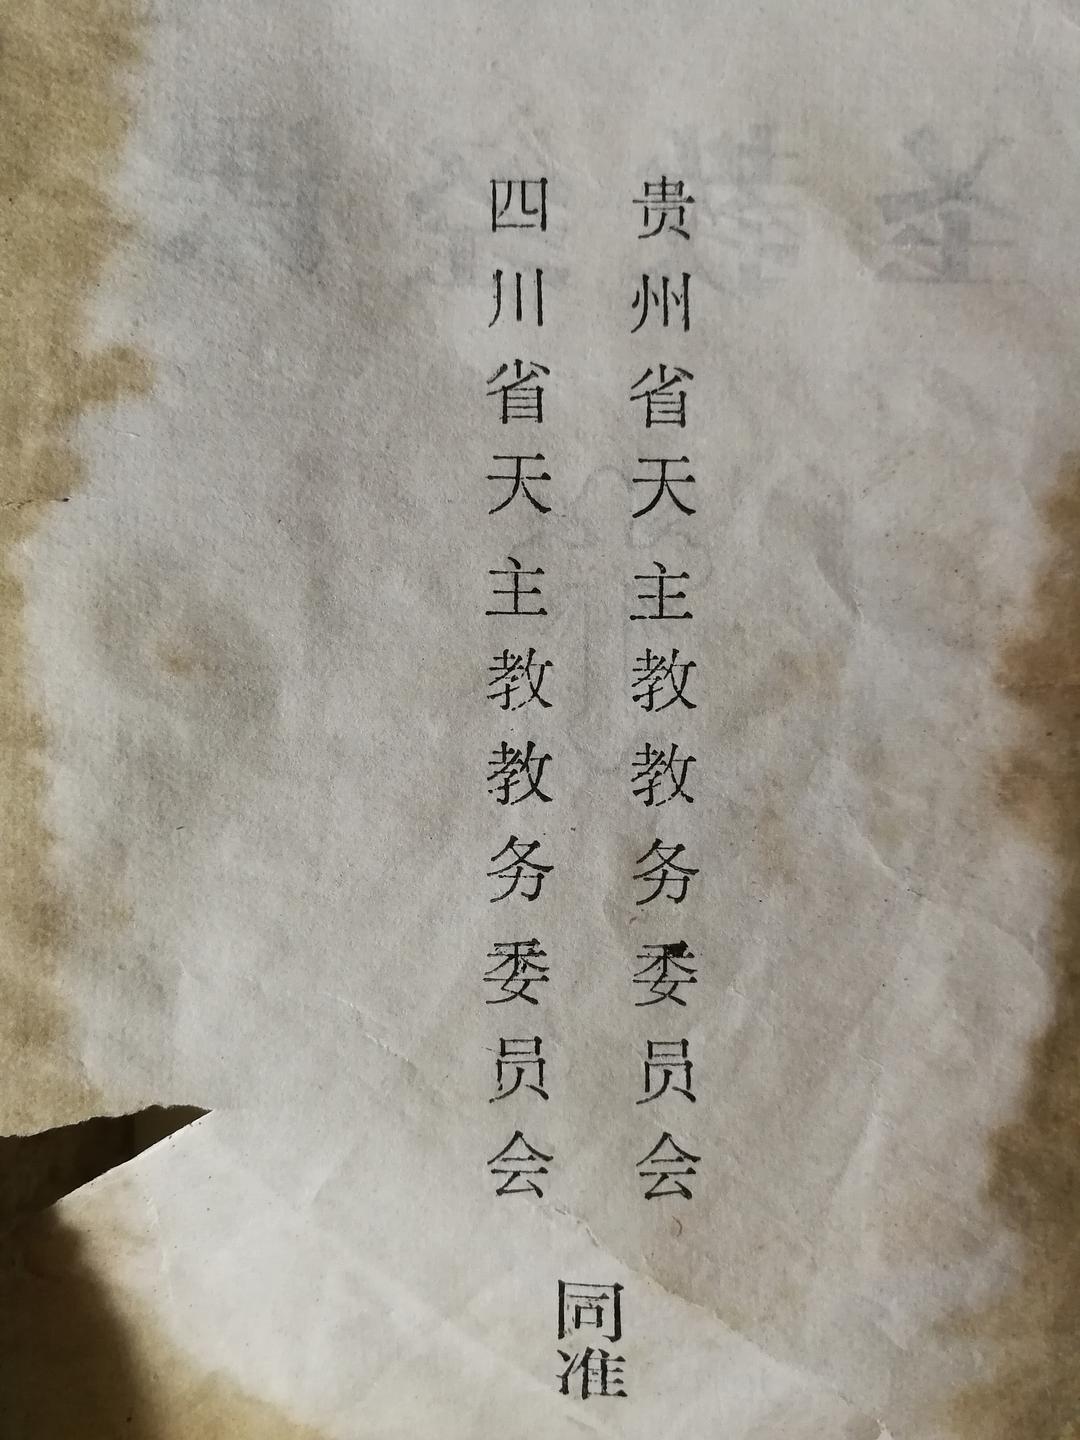 贵州省天主教教务委员会
四川省天主教教务委员会
同准